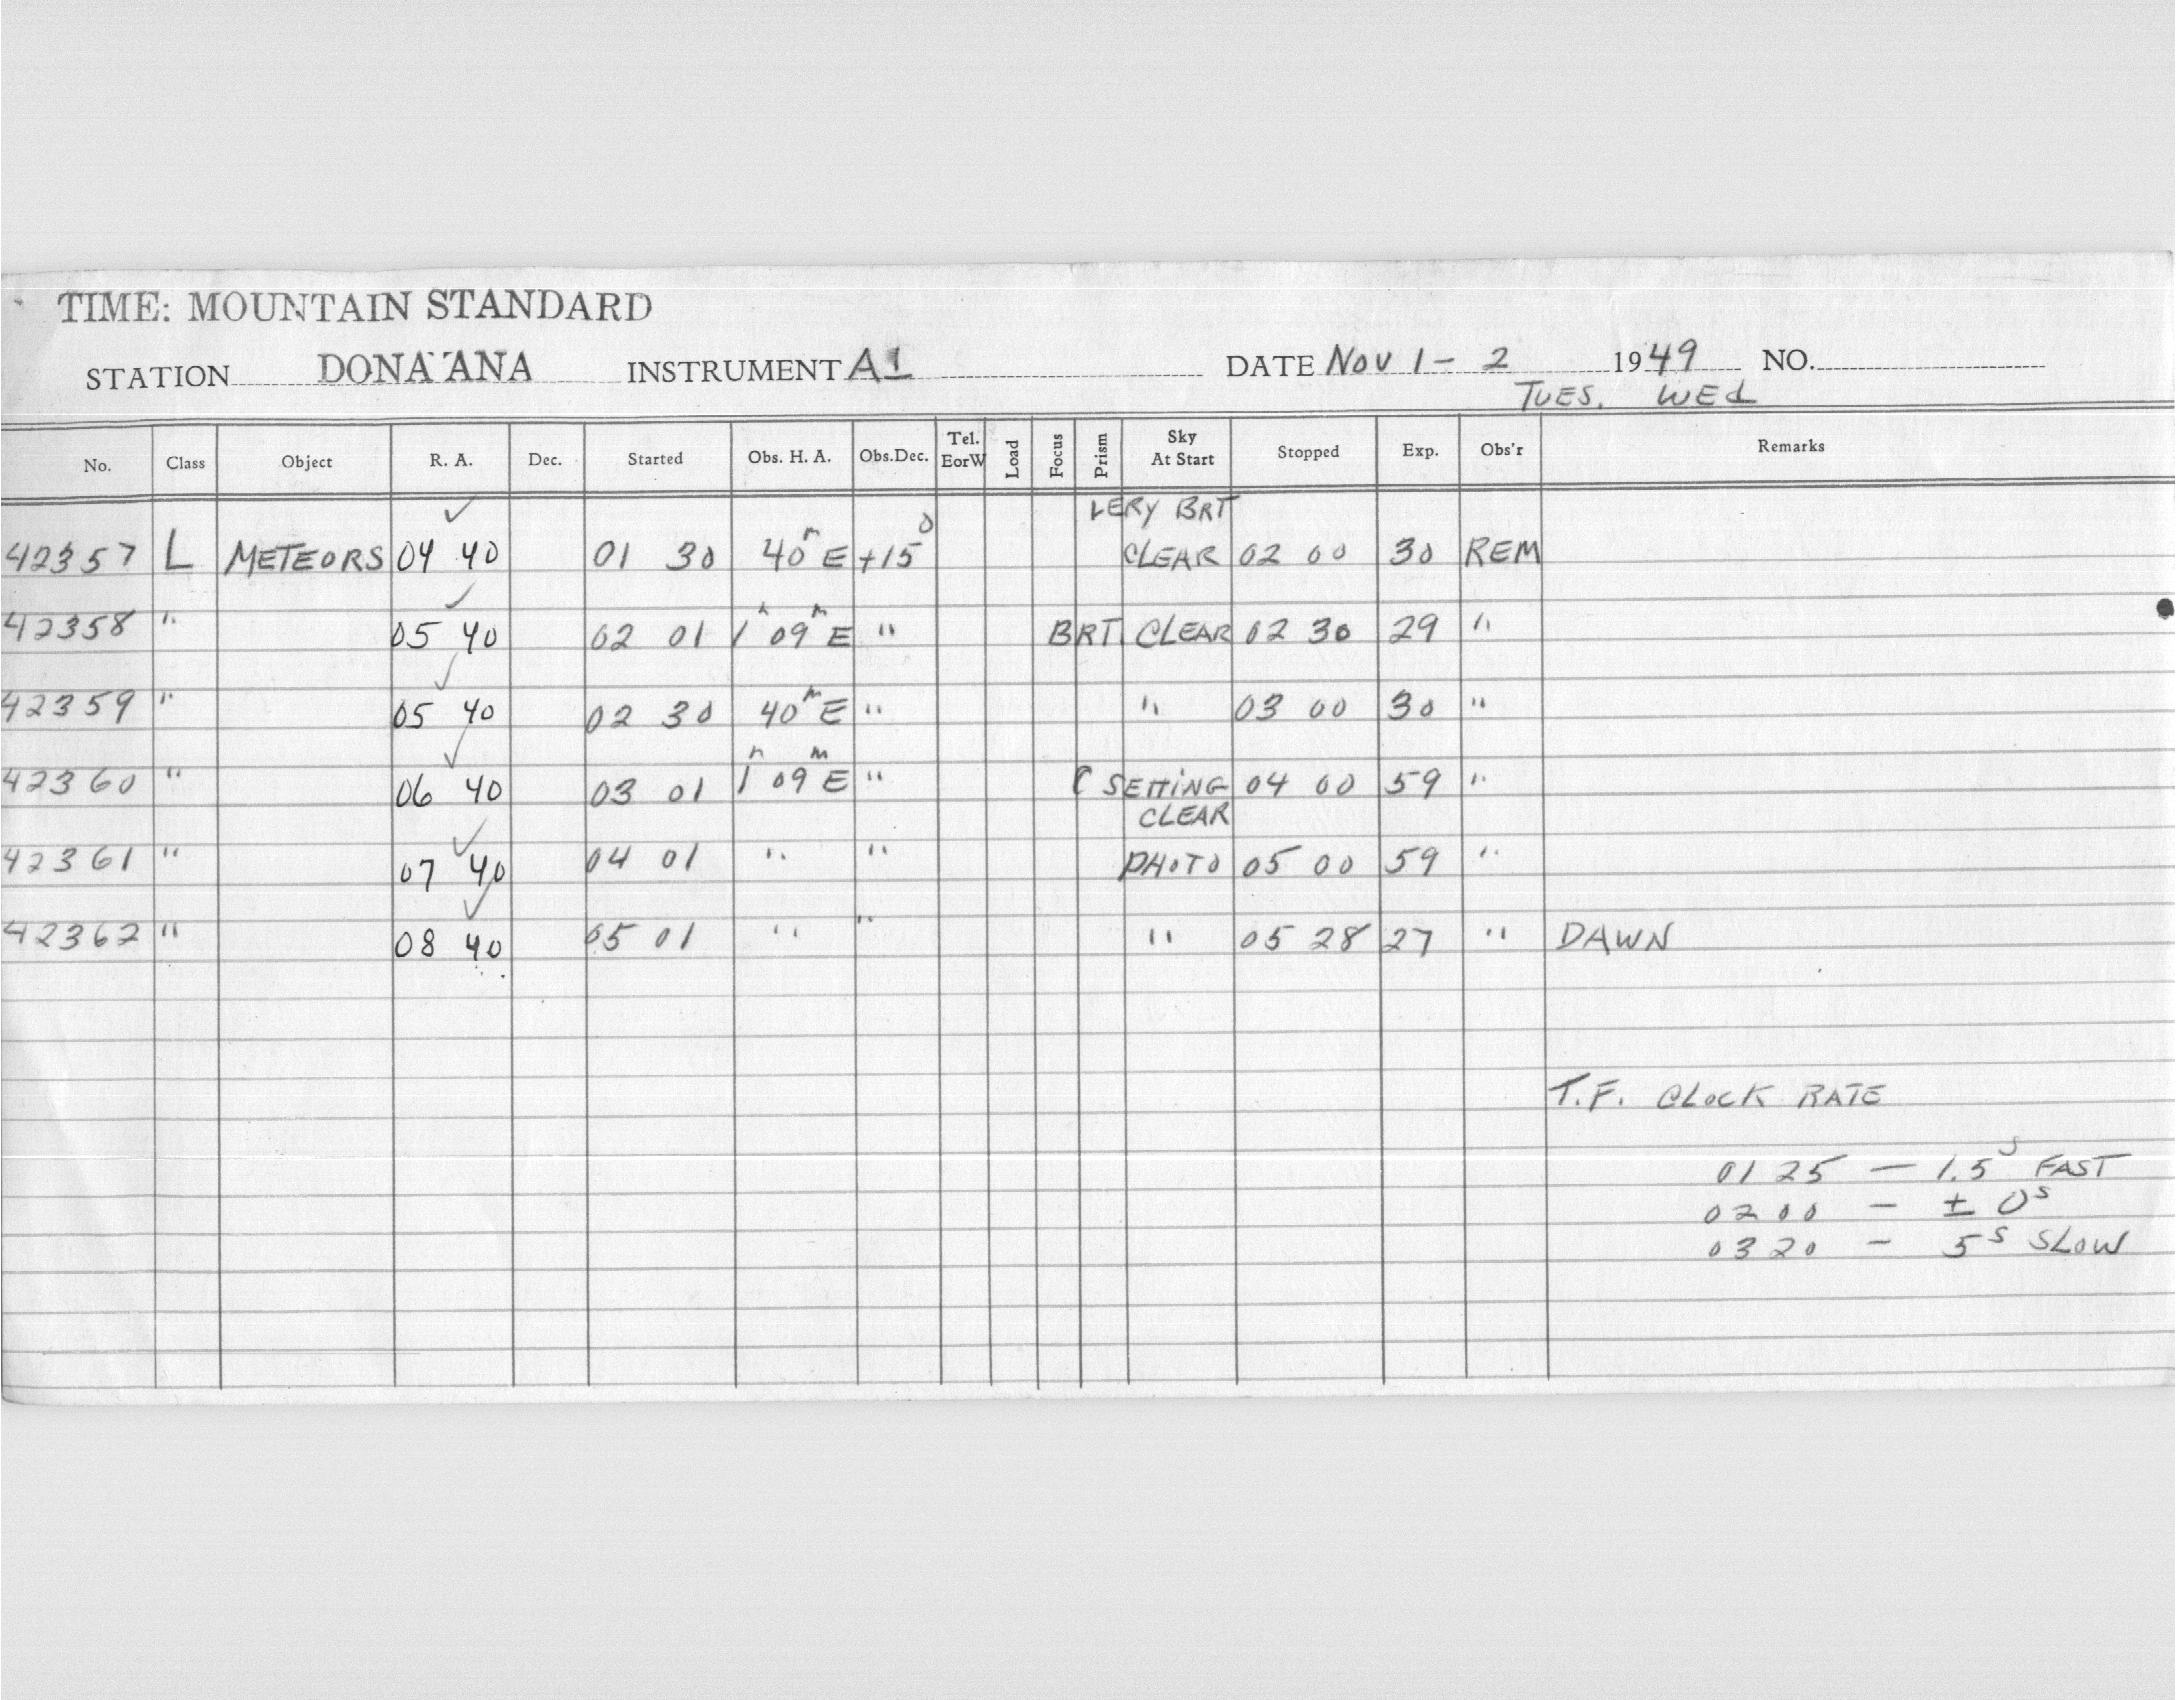 TIME: MOUNTAIN STANDARD
STATION DONA ANA INSTRUMENT A1 DATE NOV 1 - 2 1949 NO.
TUES. WED
No. Class Object R. A. Dec. Started Obs. H. A. Obs.Dec. Tel. EorW Load Focus Prism Sky At Start Stopped Exp. Obs'r Remarks
✓ VERY BRT
42357 L METEORS 04 40 01 30 40m E +15° CLEAR 02 00 30 REM
✓
42358 " 05 40 02 01 1h 09m E " BRT CLEAR 02 30 29 "
✓
42359 " 05 40 02 30 40m E " " 03 00 30 "
✓
42360 " 06 40 03 01 1h 09m E " ☾ SETTING 04 00 59 "
CLEAR
✓
42361 " 07 40 04 01 " " PHOTO 05 00 59 "
✓
42362 " 08 40 05 01 " " " 05 28 27 " DAWN
T.F. CLOCK RATE
01 25 — 1.5s FAST
02 00 — ± 0s
03 20 — 5s SLOW